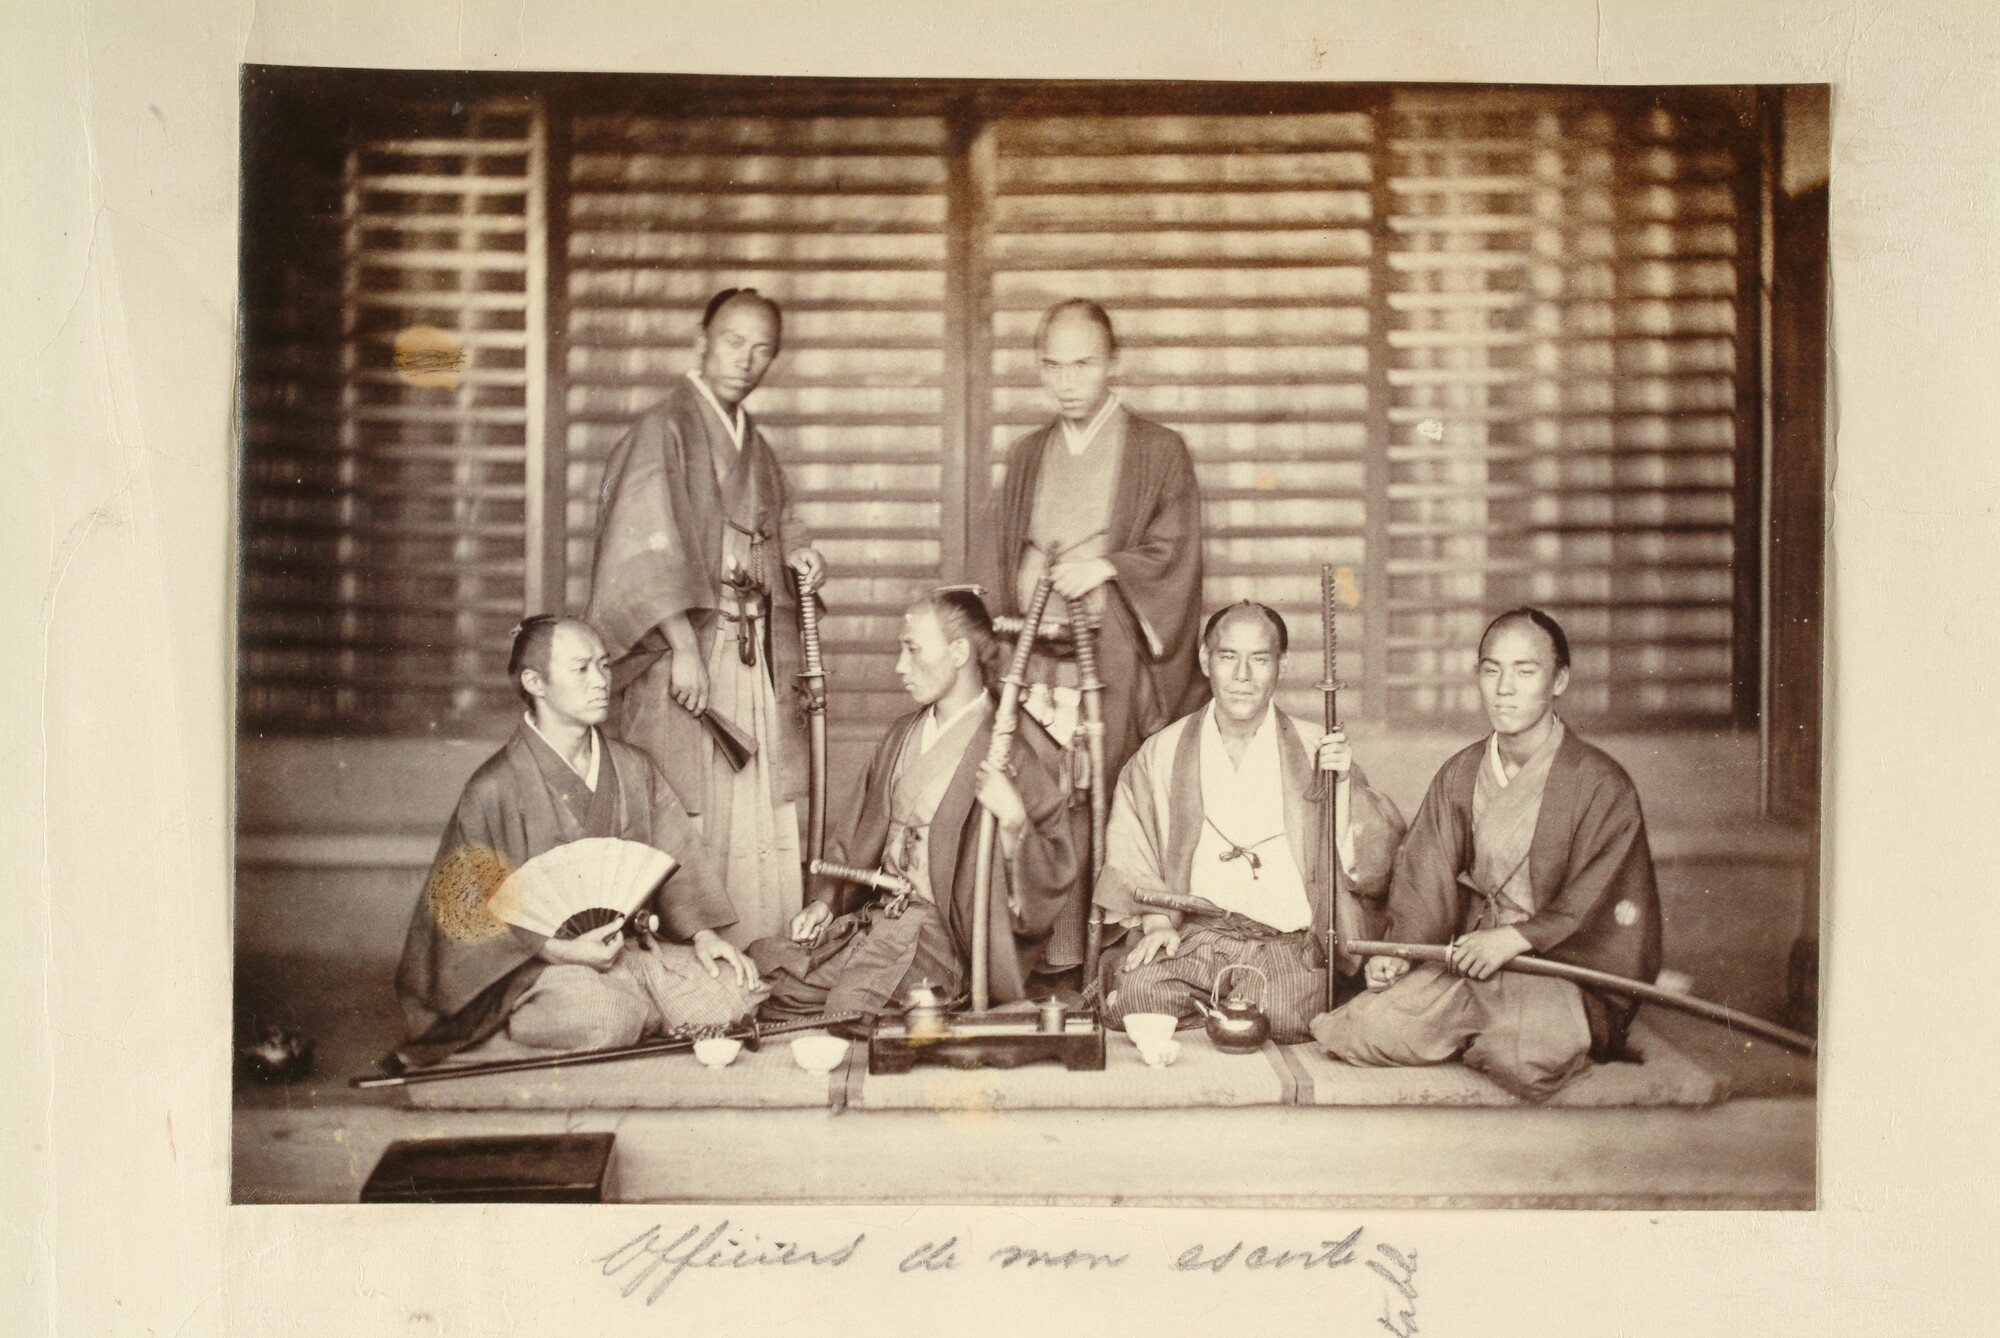 Officiers de mon escorte